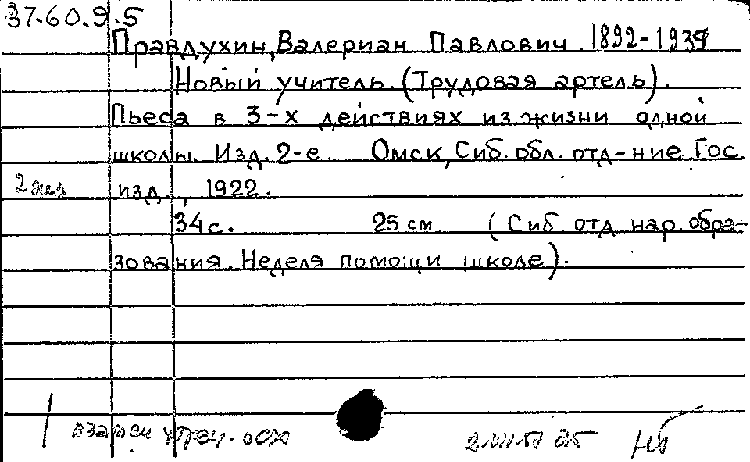 37-60.9.5
Правдухин, Валериан Павлович. 1892-1939
Новый учитель. (Трудовая артель).
Пьеса в 3-х действиях из жизни одной
школы. Изд. 2-е Омск, Сиб. обл. отд-ние Гос.
2 экз изд., 1922.
34 с. 25 см (Сиб отд нар. обра-
зования. Неделя помощи школе).